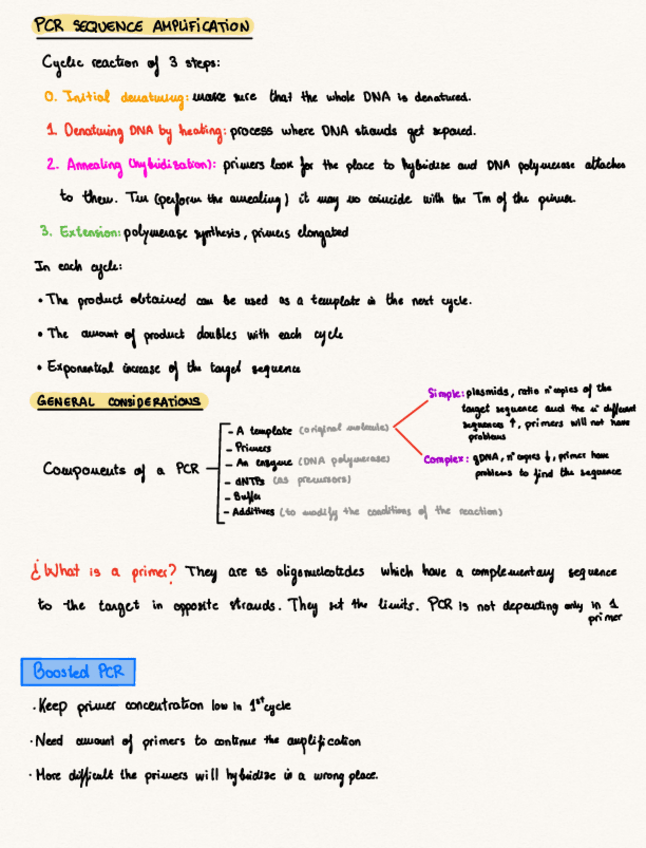 PCR SEQUENCE AMPLIFICATION
Cyclic reaction of 3 steps:
0. Initial denaturing: make sure that the whole DNA is denatured.
1. Denaturing DNA by heating: process where DNA strands get separed.
2. Annealing (hybridisation): primers look for the place to hybridise and DNA polymerase attaches
to them. Tm (perform the annealing) it may no coincide with the Tm of the primer.
3. Extension: polymerase synthesis, primers elongated
In each cycle:
• The product obtained can be used as a template in the next cycle.
• The amount of product doubles with each cycle
• Exponential increase of the target sequence
GENERAL CONSIDERATIONS
Components of a PCR
- A template (original molecule)
- Primers
- An enzyme (DNA polymerase)
- dNTPs (as precursors)
- Buffer
- Additives (to modify the conditions of the reaction)
Simple: plasmids, ratio nº copies of the
target sequence and the nº different
sequences ↑, primers will not have
problems
Complex: gDNA, nº copies ↓, primer have
problems to find the sequence
¿What is a primer? They are ss oligonucleotides which have a complementary sequence
to the target in opposite strands. They set the limits. PCR is not depending only in 1
primer
Boosted PCR
· Keep primer concentration low in 1st cycle
· Need amount of primers to continue the amplification
· More difficult the primers will hybridise in a wrong place.